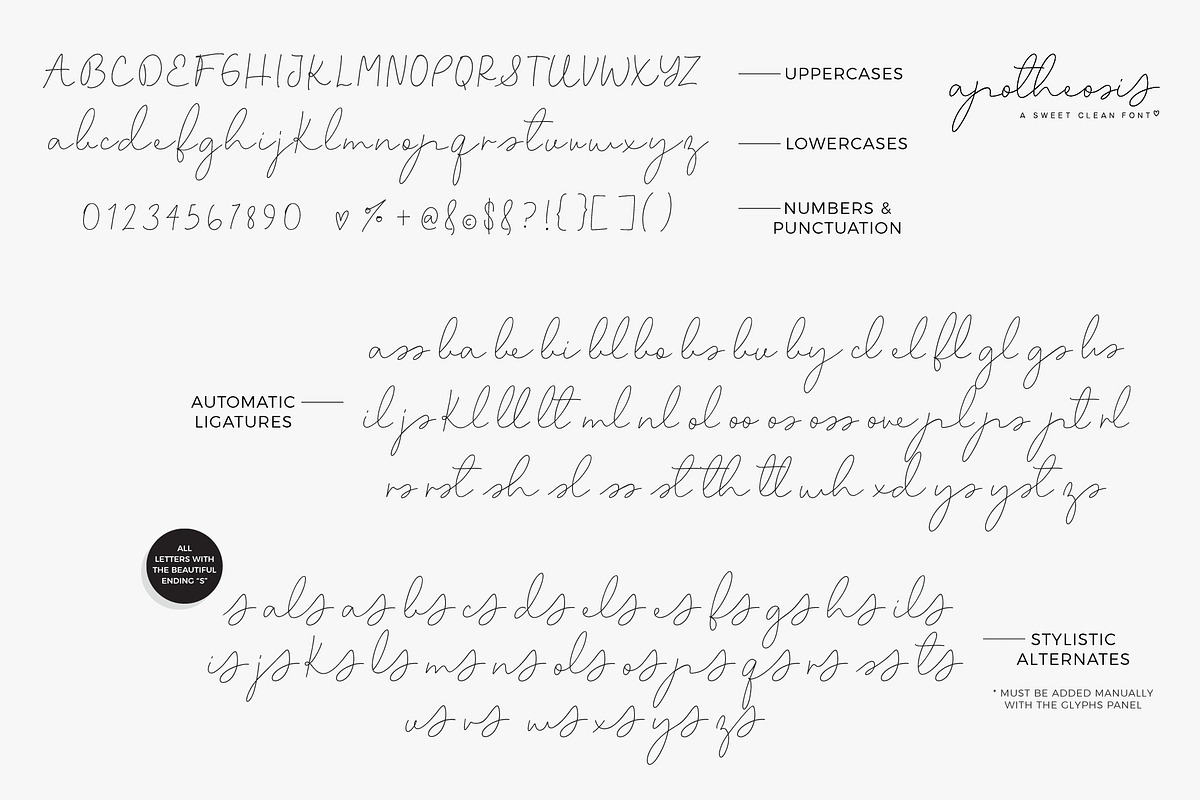 ABCDEFGHIJKLMNOPQRSTUVWXYZ
UPPERCASES
apotheosis
A SWEET CLEAN FONT♡
abcdefghijklmnopqrstuvwxyz
LOWERCASES
01234567890 ♡ % + @ & © $ & ? ! { } [ ] ( )
NUMBERS &
PUNCTUATION
ass ba be bi bl bo bs bu by cl el fl gl gs hs
AUTOMATIC
LIGATURES
il js kl ll lt ml nl ol oo os oss ove pl ps pt rl
rs rst sh sl ss st th tt wh xd ys yst zs
ALL
LETTERS WITH
THE BEAUTIFUL
ENDING "S"
s als as bs cs ds els es fs gs hs ils
is js ks ls ms ns ols os ps qs rs ss ts
us vs ws xs ys zs
STYLISTIC
ALTERNATES
* MUST BE ADDED MANUALLY
WITH THE GLYPHS PANEL